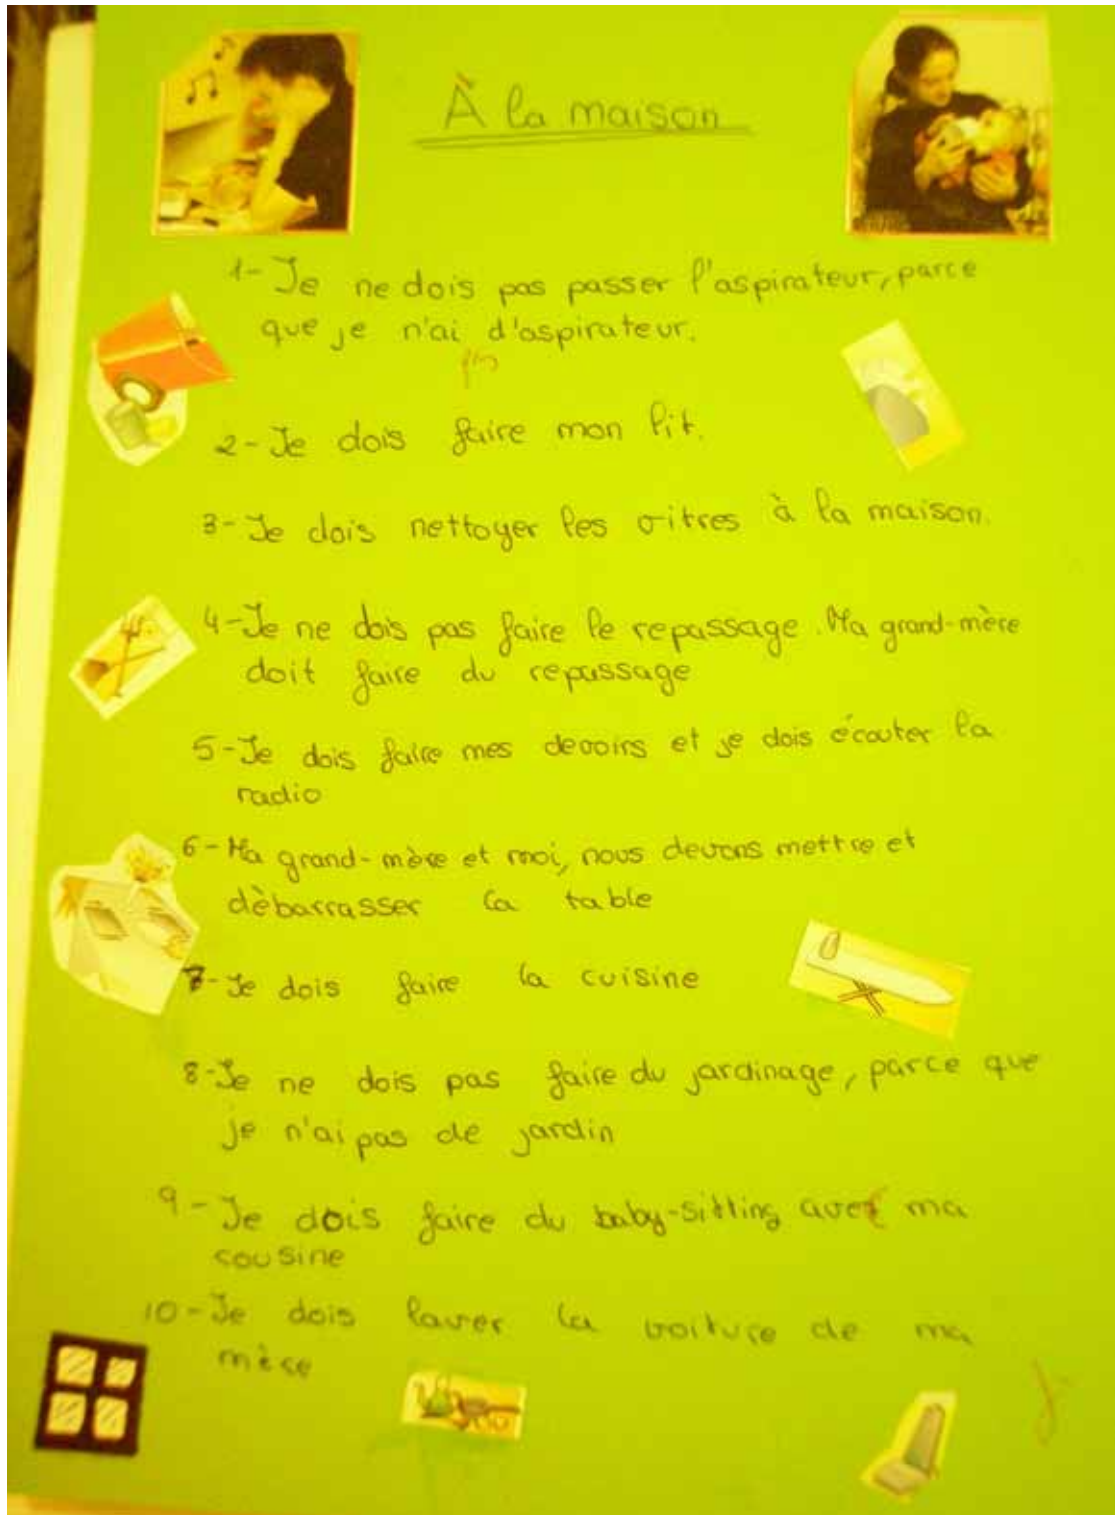 À la maison
1- Je ne dois pas passer l'aspirateur, parce
que je n'ai d'aspirateur.
pas
2- Je dois faire mon lit.
3- Je dois nettoyer les vitres à la maison.
4- Je ne dois pas faire le repassage. Ma grand-mère
doit faire du repassage
5- Je dois faire mes devoirs et je dois écouter la
radio
6- Ma grand-mère et moi, nous devons mettre et
dèbarrasser la table
7- Je dois faire la cuisine
8- Je ne dois pas faire du jardinage, parce que
je n'ai pas de jardin
9- Je dois faire du baby-sitting avec ma
cousine
10- Je dois laver la voiture de ma
mère